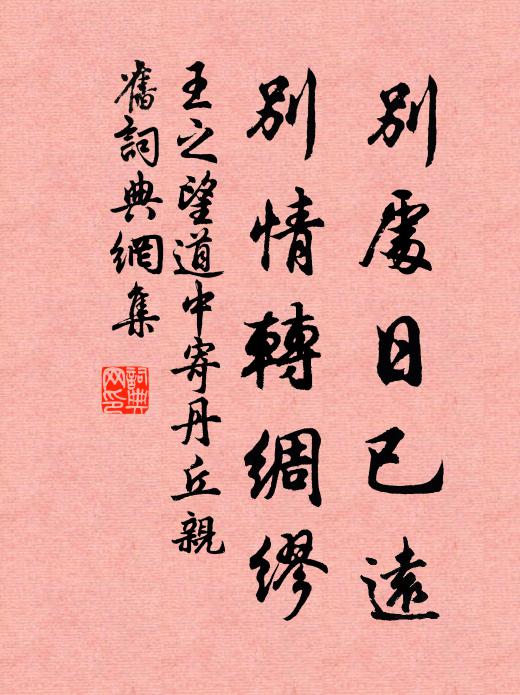 別處日已遠
別情轉綢繆
王之望道中寄丹丘親
舊詞典網集
詞典
网印